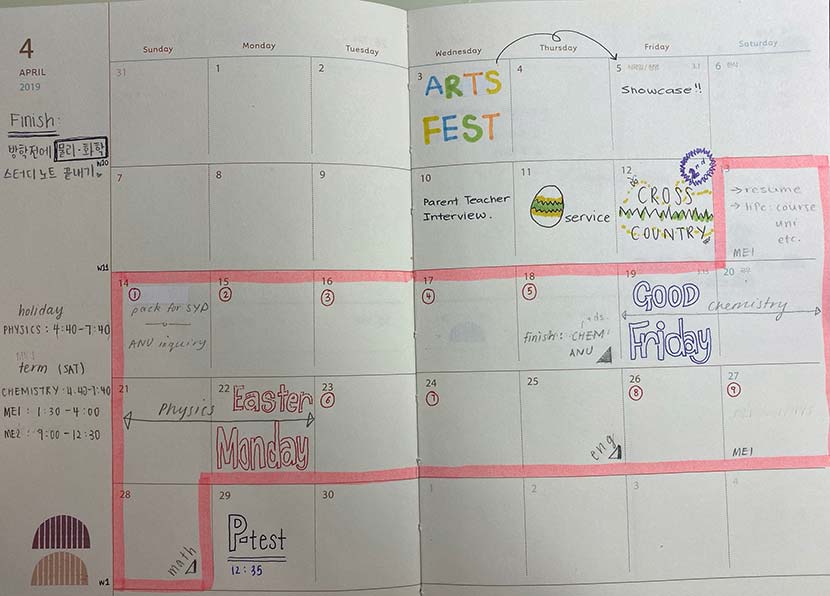 4
APRIL
2019
Sunday Monday Tuesday Wednesday Thursday Friday Saturday
Finish:
방학전에 물리·화학
스터디노트 끝내기
31 1 2 3 4 5 3.1 6 한식
ARTS
FEST
Showcase!!
W10
7 8 9 10 11 12 13
Parent Teacher
Interview.
service
2nd
CROSS
COUNTRY
→ resume
→ hpc: course
uni
etc.
ME1
W11
14 15 16 17 18 19 20
① ② ③ ④ ⑤
pack for SYD
ANU inquiry
finish: CHEM
ANU
GOOD
Friday
chemistry
holiday
PHYSICS: 4:40-7:40
term (SAT)
CHEMISTRY: 4.40-7:40
ME1: 1:30-4:00
ME2: 9:00-12:30
21 22 23 24 25 26 27
⑥ ⑦ ⑧ ⑨
Physics
Easter
Monday
eng
ME1
28 29 30 1 2 3 4
math
P-test
12:35
W1